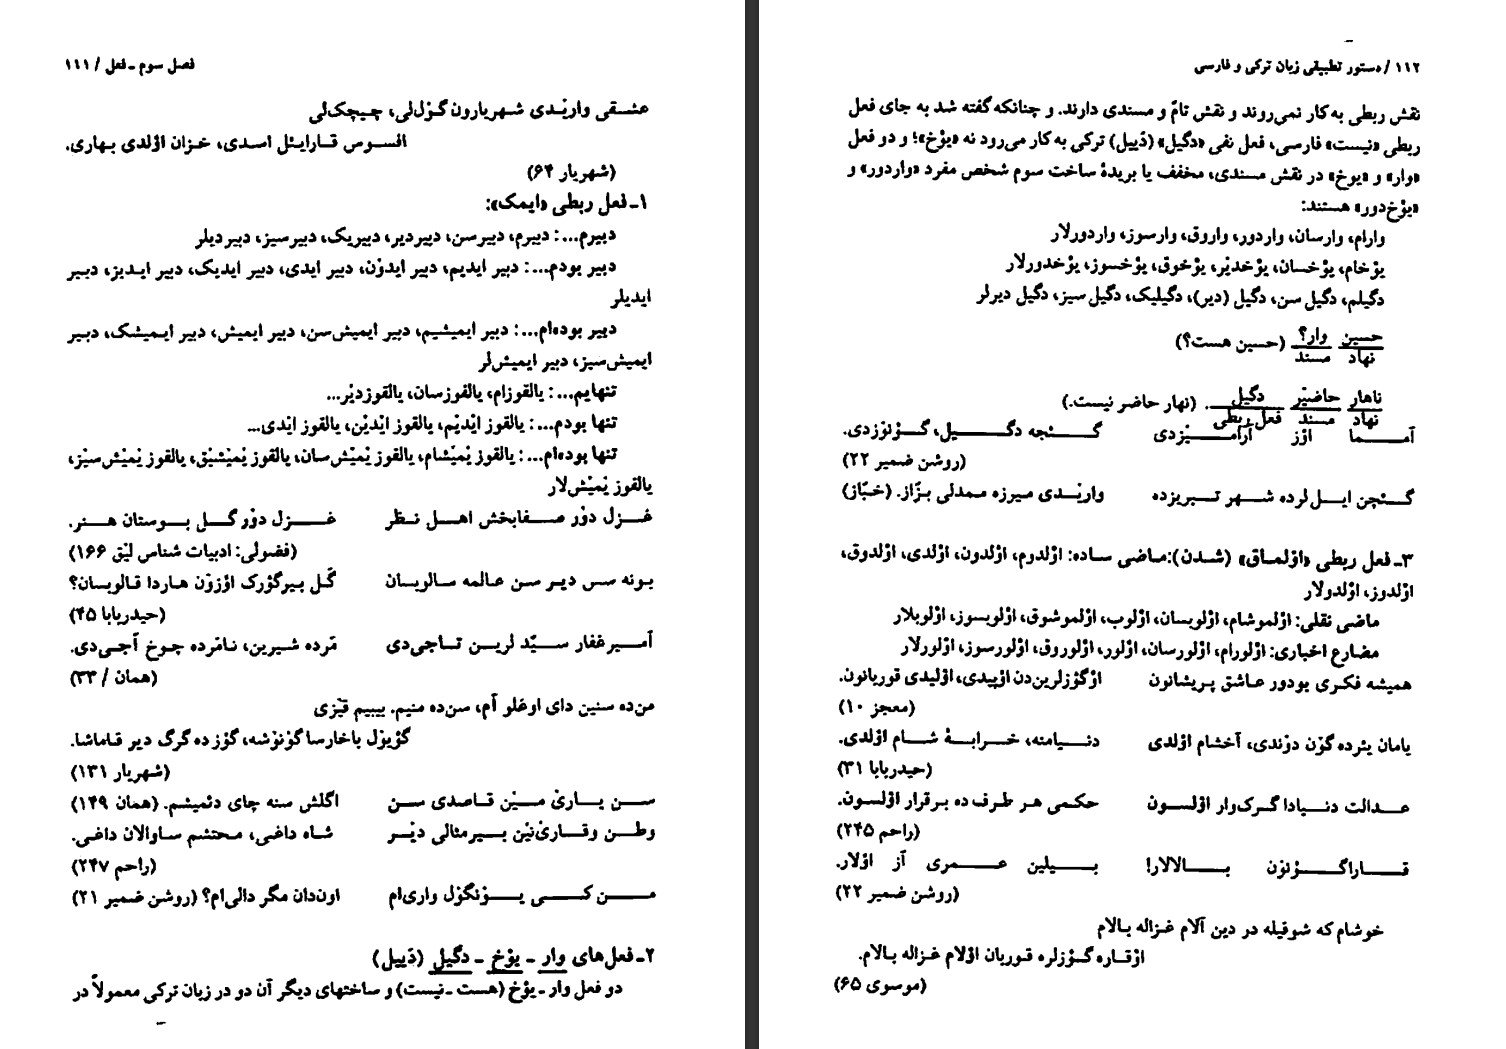 فصل سوم ـ فعل / ۱۱۱
عشـقی واریْـدی شـهریارون گـؤل‌لی، چـیچک‌لی
افسـوس قـارایئل اسـدی، خـزان اؤلدی بـهاری.
(شهریار ۶۴)
۱ـ فعل ربطی «ایمک»:
دبیرم...: دبیرم، دبیرسن، دبیردیر، دبیریک، دبیرسیز، دبیردیلر
دبیر بودم...: دبیر ایدیم، دبیر ایدوْن، دبیر ایدی، دبیر ایدیک، دبیر ایـدیز، دبـیر
ایدیلر
دبیر بوده‌ام...: دبیر ایمیشیم، دبیر ایمیش‌سن، دبیر ایمیش، دبیر ایـمیشک، دبـیر
ایمیش‌سیز، دبیر ایمیش‌لر
تنهایم...: یالقوزام، یالقوزسان، یالقوزدیْر...
تنها بودم...: یالقوز ایْدیْم، یالقوز ایْدیْن، یالقوز ایْدی...
تنها بوده‌ام...: یالقوز یْمیْشام، یالقوز یْمیْش‌سان، یالقوز یْمیْشیْق، یالقوز یْمیْش‌سیْز،
یالقوز یْمیْش‌لار
غـزل دوْر صـفابخش اهـل نـظر غـزل دوْر گـل بـوستان هـنر.
(فضولی: ادبیات شناس لیْق ۱۶۶)
بـونه سـس دیـر سـن عـالمه سـالریسان گَل بیرگؤرک اوْزوْن هـاردا قـالوبسان؟
(حیدربابا ۴۵)
آمـیرغفار سـیّد لریـن تـاجی‌دی مَرده شـیرین، نـامَرده چـوخ آجـی‌دی.
(همان / ۳۳)
من‌ده سنین دای اوغلو آم، سن‌ده منیم. بیبیم قیْزی
گؤیؤل باخارسا گوْنوْشه، گؤز ده گرگ دیر قـاماشا.
(شهریار ۱۳۱)
سـن یـاریْ مـیْن قـاصدی سـن اگلش سنه چای دئمیشم. (همان ۱۴۹)
وطـن وقـاریْ‌نیْن بـیرمثالی دیْـر شاه داغـی، مـحتشم سـاوالان داغـی.
(راحم ۲۴۷)
مـن کـی یـوْنگوْل واری‌ام اون‌دان مگر دالی‌ام؟ (روشن ضمیر ۲۱)
۲ـ فعل‌های وار ـ یوْخ ـ دگیل (دَییل)
دو فعل وار ـ یوْخ (هست ـ نیست) و ساختهای دیگر آن دو در زبان ترکی معمولاً در
۱۱۲ / دستور تطبیقی زبان ترکی و فارسی
نقش ربطی به کار نمی‌روند و نقش تامّ و مسندی دارند. و چنانکه گفته شد به جای فعل
ربطی «نیست» فارسی، فعل نفی «دگیل» (دَییل) ترکی به کار می‌رود نه «یوْخ»؛ و دو فعل
«وار» و «یوخ» در نقش مسندی، مخفف یا بریدهٔ ساخت سوم شخص مفرد «واردور» و
«یوْخ‌دور» هستند:
وارام، وارسان، واردور، واروق، وارسوز، واردورلار
یوْخام، یوْخسان، یوْخدیْر، یوْخوق، یوْخسوز، یوْخدورلار
دگیلم، دگیل سن، دگیل (دیر)، دگیلیک، دگیل سیز، دگیل دیرلر
حسین وار؟ (حسین هست؟)
نهاد مسند
ناهار حاضیْر دگیل. (نهار حاضر نیست.)
نهاد مسند فعل ربطی
آمـا اوْز آرامـیْزدی گـنجه دگـیل، گـوْنوْزدی.
(روشن ضمیر ۲۲)
گـئچن ایـل‌لرده شـهر تـبریزده واریْـدی میرزه مـمدلی بـزّاز. (خبّاز)
۳ـ فعل ربطی «اوْلمـاق» (شـدن):مـاضی سـاده: اوْلدوم، اوْلدون، اوْلدی، اوْلدوق،
اوْلدوز، اوْلدولار
ماضی نقلی: اوْلموشام، اوْلوبسان، اوْلوب، اوْلموشوق، اوْلوبسوز، اوْلوبلار
مضارع اخباری: اوْلورام، اوْلورسان، اوْلور، اوْلوروق، اوْلورسوز، اوْلورلار
همیشه فکـری بودور عـاشق پـریشانون اوْگؤزلرین‌دن اوْپیدی، اوْلیدی قوربانون.
(معجز ۱۰)
یامان یئرده گوْن دوْندی، آخشام اوْلدی دنـیامنه، خـرابـهٔ شـام اوْلدی.
(حیدربابا ۳۱)
عـدالت دنـیادا گـرک‌وار اوْلـسون حکـمی هـر طـرف ده بـرقرار اوْلسون.
(راحم ۲۴۵)
قـاراگـوْنوْن بـالالار! بـیلین عـمری آز اوْلار.
(روشن ضمیر ۲۲)
خوشام که شوقیله در دین آلام غـزاله بـالام
اوْقـاره گـؤزلره قـوربان اوْلام غـزاله بـالام.
(موسوی ۶۵)